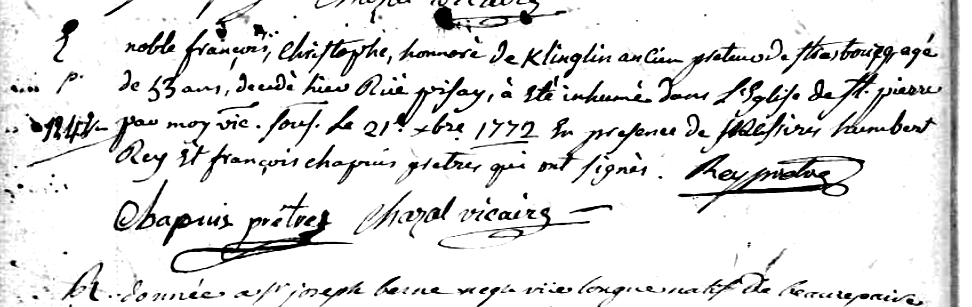 noble françois, Christophe, honnoré de Klinglin ancien preteur de strasbourg, agé
de 53 ans, decedé hier Rüe pisay, à été inhumé dans L'Eglise de st. pierre
par moy vic. sous. Le 21e. xbre 1772 En presence de Messires humbert
Rey Et françois chapuis pretres qui ont signés. Rey pretre
Chapuis pretre Chazal vicaire
R. donnée a sr. joseph berne negt. rüe longue natif de beaurepaire